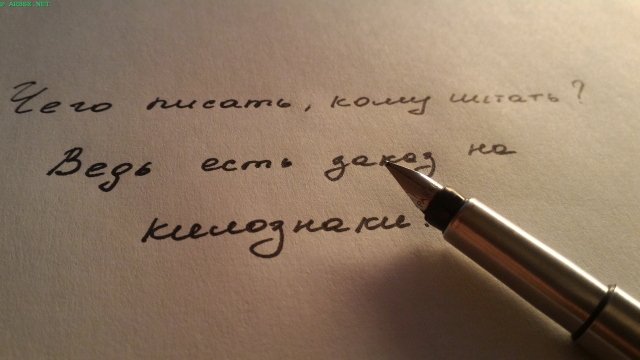 © AUDES.NET
Чего писать, кому штать?
Ведь есть заказ на
килознаки